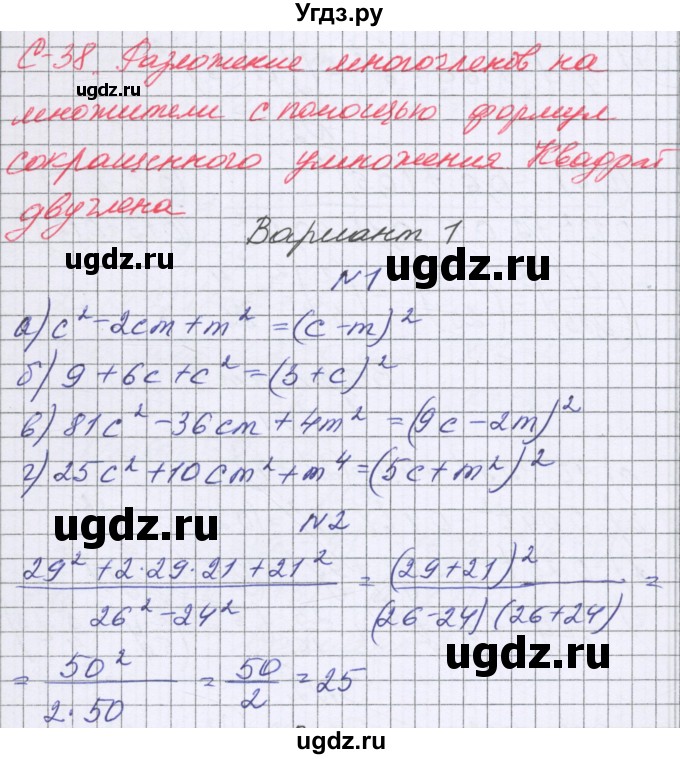 Угдз.ру
С-38. Разложение многочленов на
ugdz.ru ugdz.ru
множители с помощью формул
сокращенного умножения Квадрат
двучлена
Вариант 1
ugdz.ru ugdz.ru
№1
а) c² - 2cm + m² = (c - m)²
б) 9 + 6c + c² = (3 + c)²
в) 81c² - 36cm + 4m² = (9c - 2m)²
г) 25c² + 10cm² + m⁴ = (5c + m²)²
ugdz.ru ugdz.ru
№2
29² + 2·29·21 + 21² / 26² - 24² = (29+21)² / (26-24)(26+24) =
ugdz.ru ugdz.ru
= 50² / 2·50 = 50 / 2 = 25
ugdz.ru ugdz.ru
ugdz.ru